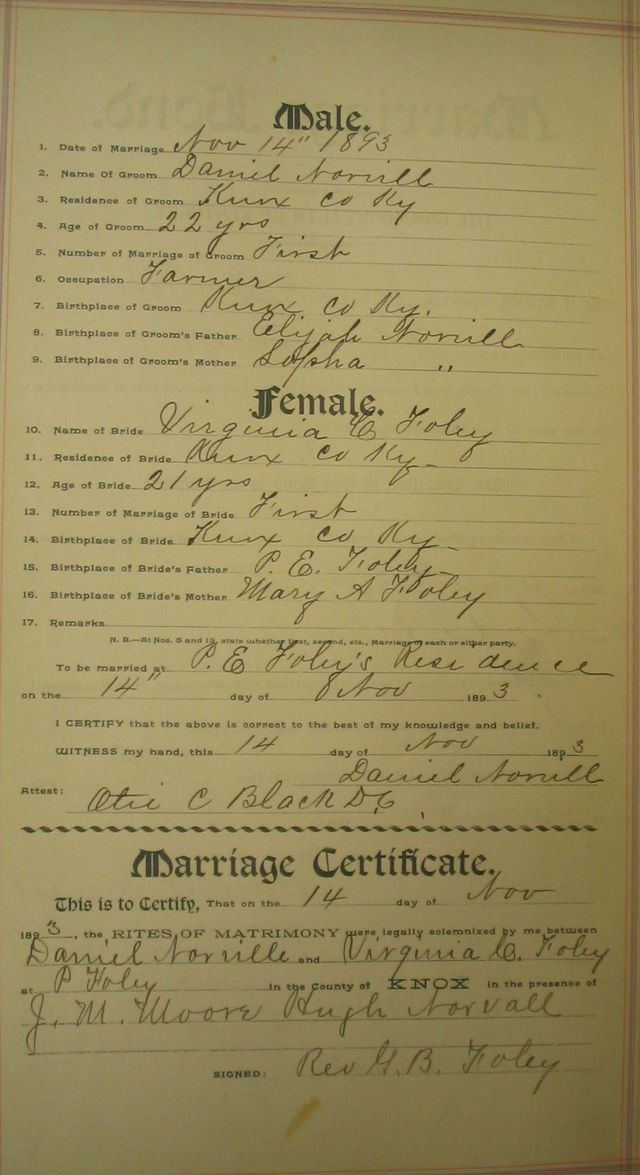 Male.
1. Date of Marriage Nov 14" 1893
2. Name Of Groom Daniel Norvill
3. Residence of Groom Knox Co Ky
4. Age of Groom 22 yrs
5. Number of Marriage of Groom First
6. Occupation Farmer
7. Birthplace of Groom Knox Co Ky.
8. Birthplace of Groom's Father Elijah Norvill
9. Birthplace of Groom's Mother Sopha "
Female.
10. Name of Bride Virginia C Foley
11. Residence of Bride Knox Co Ky
12. Age of Bride 21 yrs
13. Number of Marriage of Bride First
14. Birthplace of Bride Knox Co Ky
15. Birthplace of Bride's Father P. E. Foley
16. Birthplace of Bride's Mother Mary A Foley
17. Remarks
N. B.—At Nos. 5 and 13, state whether first, second, etc., Marriage of each or either party.
To be married at P. E Foley's Residence
on the 14" day of Nov 1893.
I CERTIFY that the above is correct to the best of my knowledge and belief.
WITNESS my hand, this 14 day of Nov 1893
Daniel Norvill
Attest: C Black D.C.
Marriage Certificate.
This is to Certify, That on the 14 day of Nov
1893, the RITES OF MATRIMONY were legally solemnized by me between
Daniel Norville and Virginia C. Foley
at P Foley in the County of KNOX in the presence of
J. M. Moore Hugh Norvall
SIGNED: Rev G. B. Foley